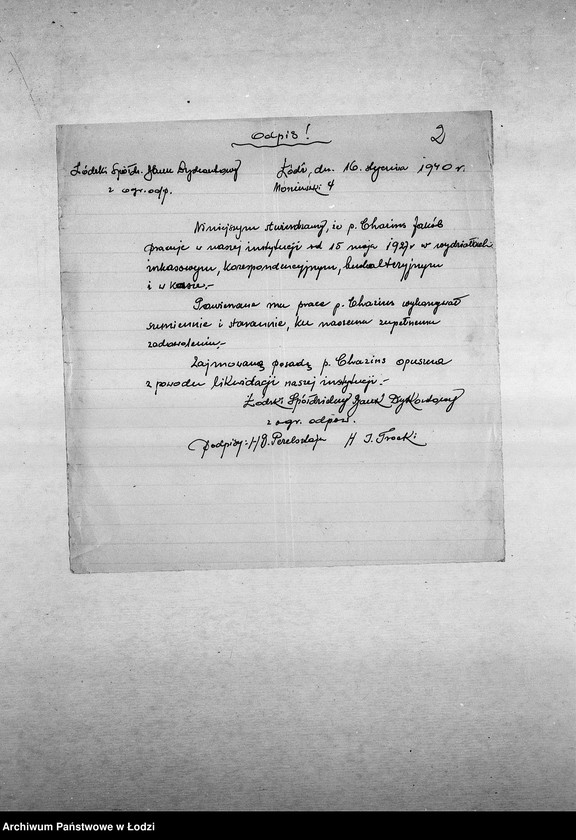 Odpis!
2
Łódzki Spółdz. Bank Dyskontowy Łódź, dn. 16 stycznia 1940 r.
z ogr. odp. Moniuszki 4
Niniejszym stwierdzamy, iż p. Chazins Jakób
pracuje w naszej instytucji od 15 maja 1927 r w wydziałach
inkasowym, korespondencyjnym, buchalteryjnym
i w kasie.-
Powierzone mu prace p. Chazins wykonywał
sumiennie i starannie, ku naszemu zupełnemu
zadowoleniu.-
Zajmowaną posadę p. Chazins opuszcza
z powodu likwidacji naszej instytucji.-
Łódzki Spółdzielczy Bank Dyskontowy
z ogr. odpow.
Podpisy: H. J. Trocki
Archiwum Państwowe w Łodzi